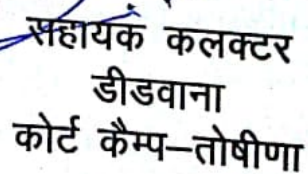 सहायक कलक्टर
डीडवाना
कोर्ट कैम्प–तोषीणा